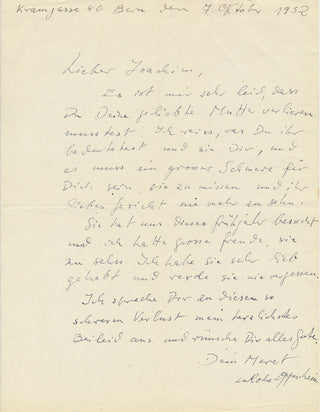 Kramgasse 40 Bern den 7. Oktober 1952
Lieber Joachim,
Es ist mir sehr leid, dass
Du Deine geliebte Mutter verlieren
musstest. Ich weiss, was Du ihr
bedeutetest und sie Dir, und
es muss ein grosser Schmerz für
Dich sein, sie zu missen und ihr
liebes Gesicht nie mehr zu sehn.
Sie hat uns dieses Frühjahr besucht
und ich hatte grosse Freude, sie
zu sehn. Ich habe sie sehr lieb
gehabt und werde sie nie vergessen.
Ich spreche Dir zu diesem so
schweren Verlust mein herzlichstes
Beileid aus und wünsche Dir alles Gute.
Dein Meret
LaRoche-Oppenheim